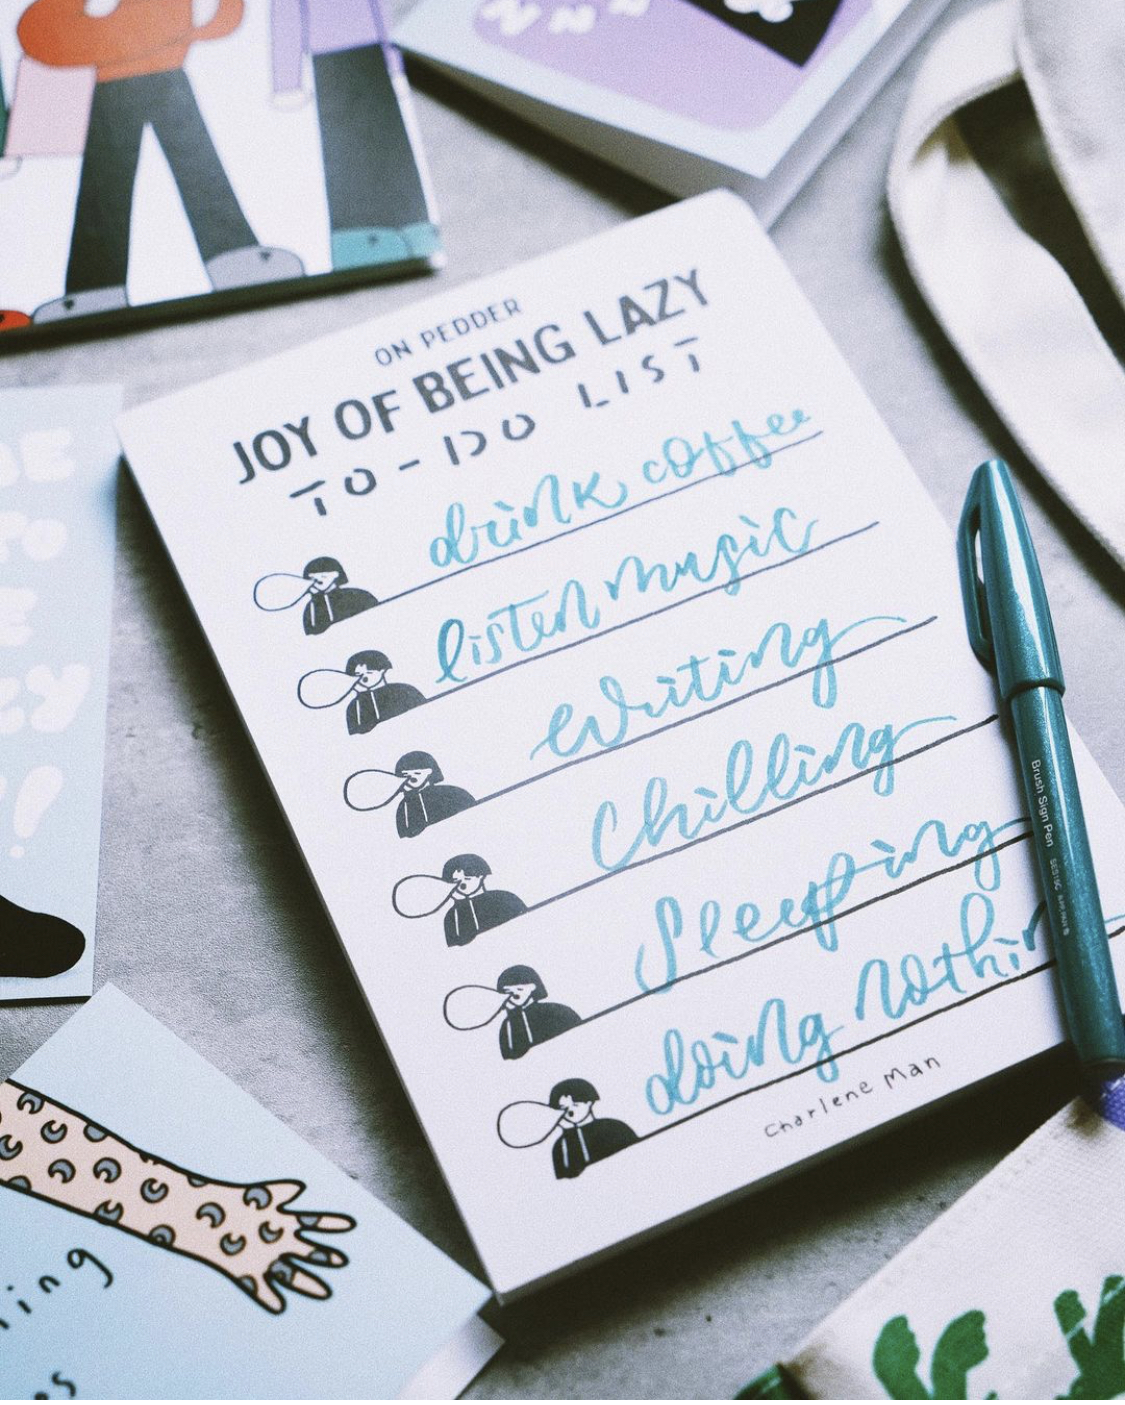 ON PEDDER
JOY OF BEING LAZY
TO-DO LIST
drink coffee
listen music
writing
chilling
sleeping
doing
Charlene Man
Brush Sign Pen
ing